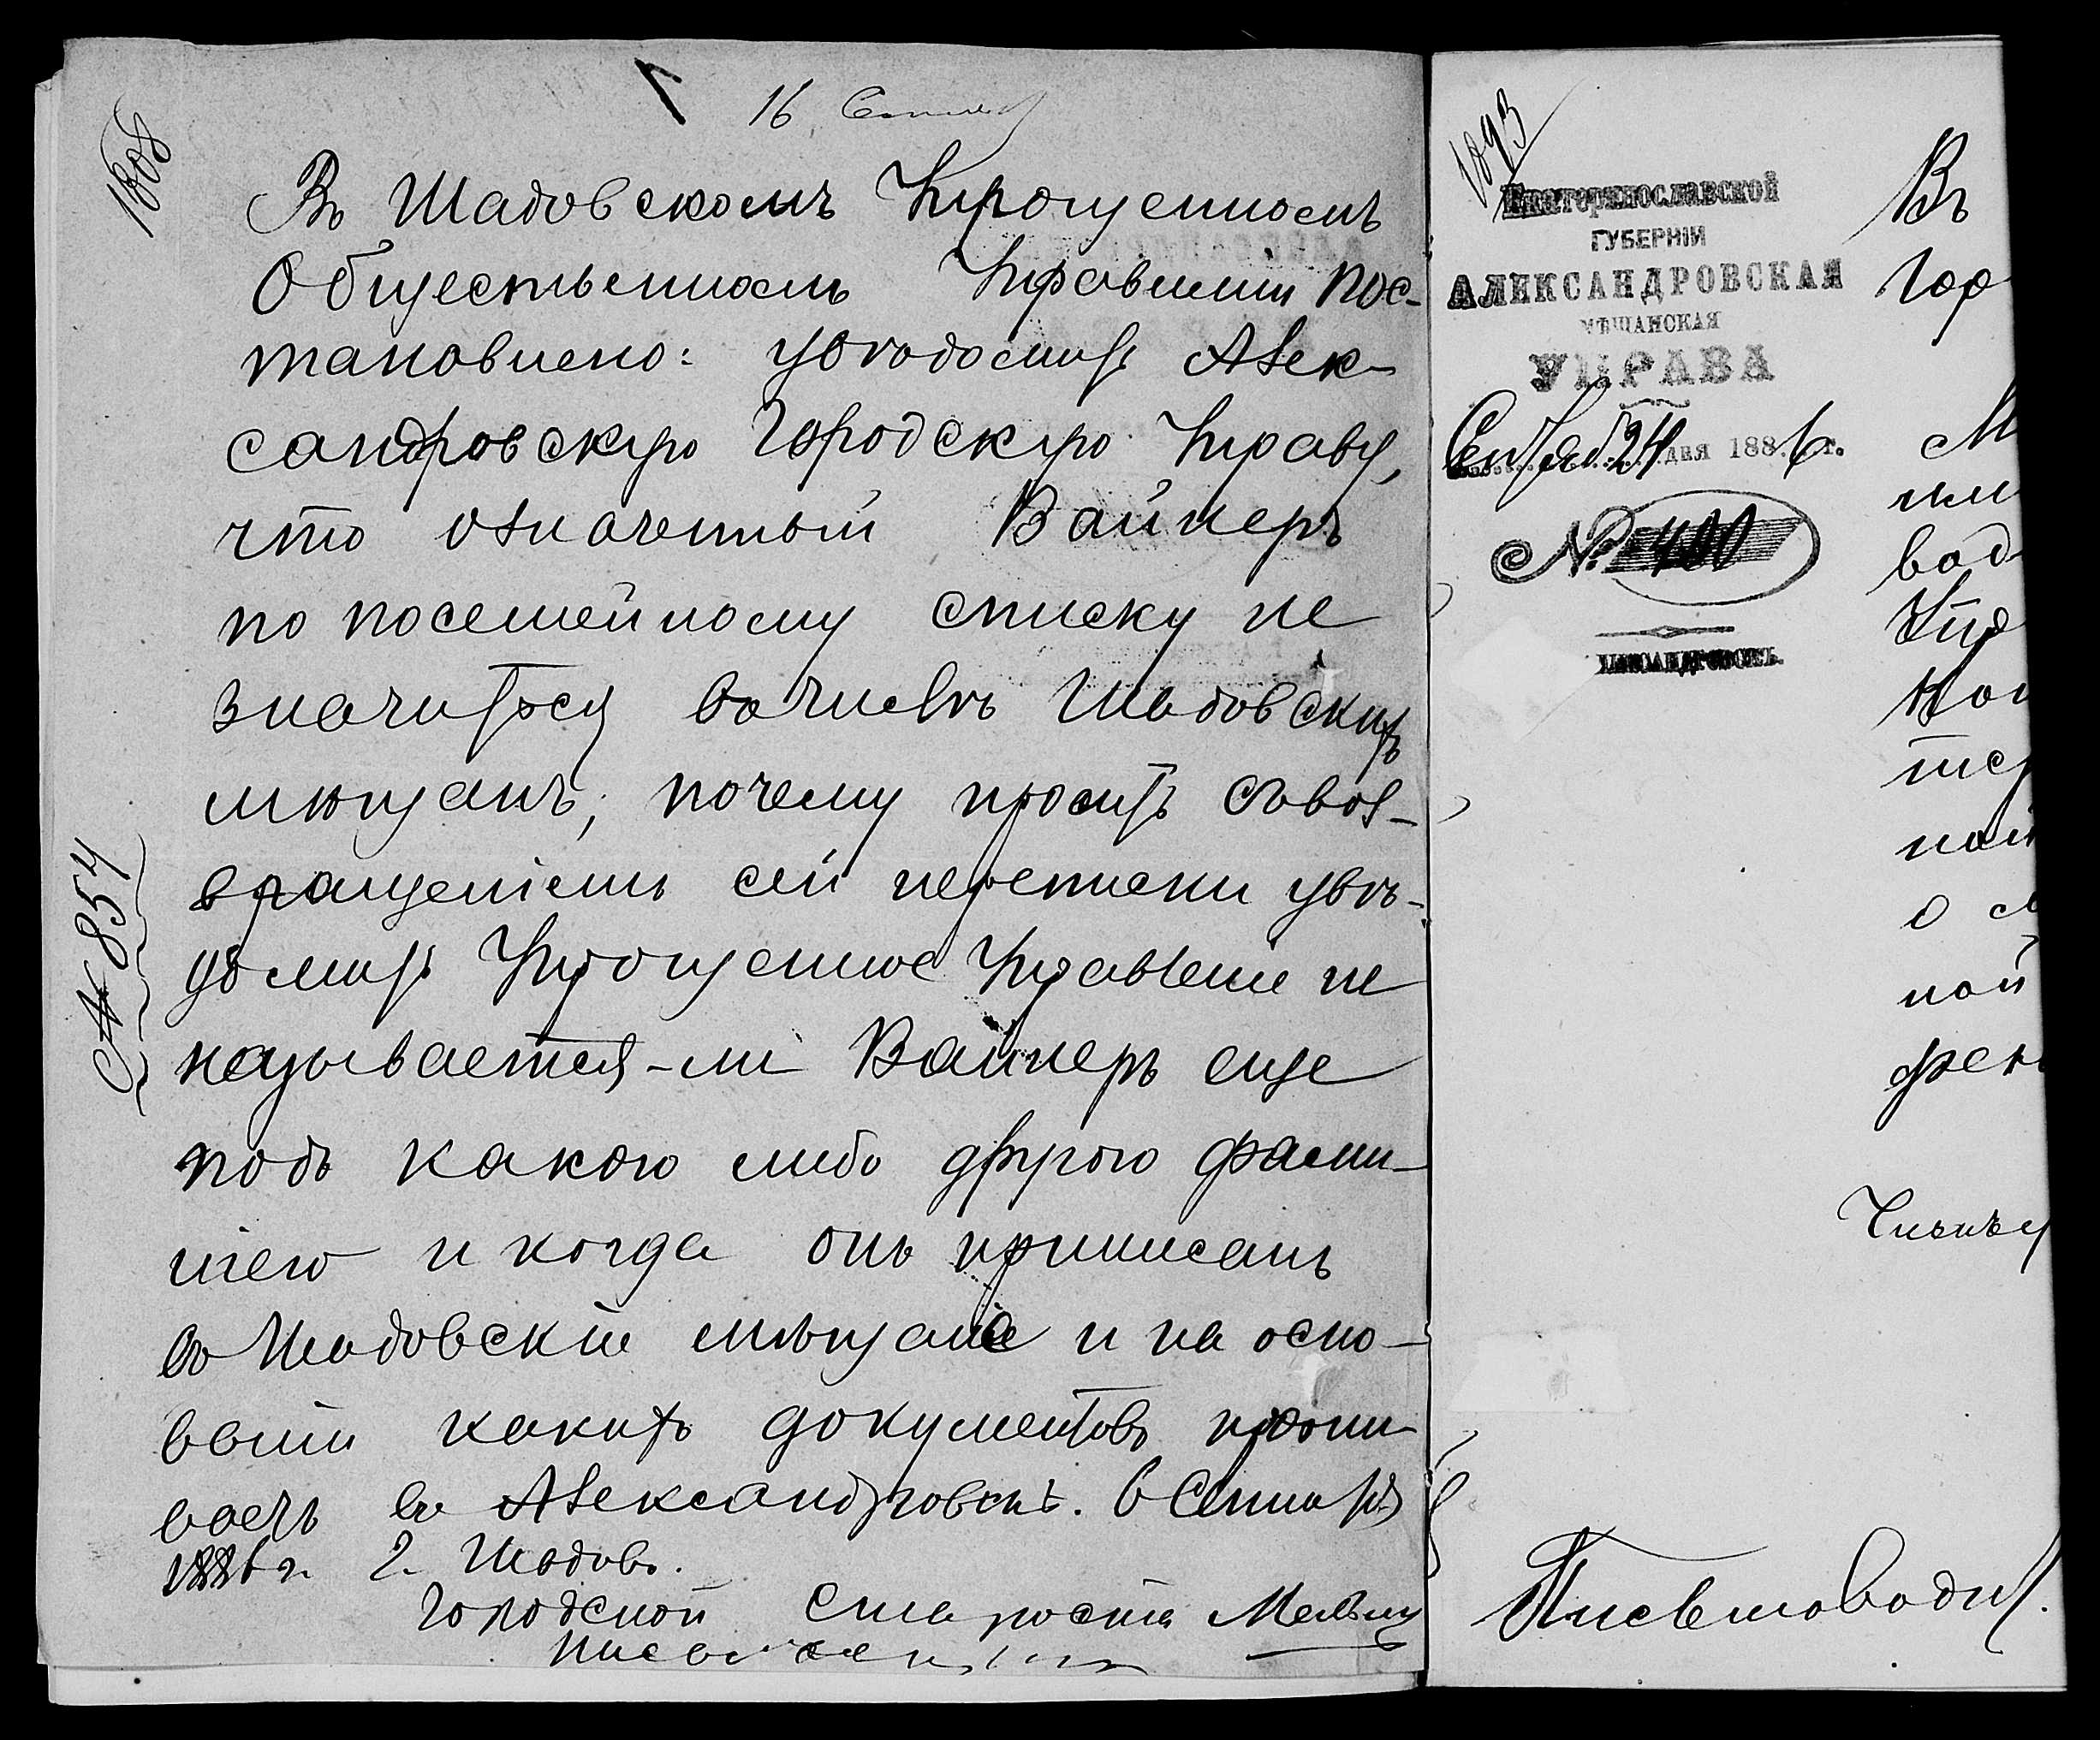 16 Сентяб
1808
Въ Шадовскомъ Упрощенномъ
Общественномъ Управленіи пос-
тановлено: увѣдомить Алек-
сандровскую Городскую Управу,
что означенный Вайнеръ
по посемейному списку не
значится въ числѣ Шадовскихъ
мѣщанъ, почему просить съ воз-
вращеніемъ сей переписки увѣ-
домить Упрощенное Управленіе не
называется-ли Вайнеръ еще
подъ какою либо другою фами-
ліею и когда онъ приписанъ
въ Шадовскіе мѣщане и на осно-
ваніи какихъ документовъ прожи
ваетъ въ Александровскѣ. 6 Сентября
1886 г. г. Шадовъ.
Городской Староста
№ 854
1893
Екатеринославской
ГУБЕРНІИ
АЛЕКСАНДРОВСКАЯ
МѢЩАНСКАЯ
УПРАВА
Сентяб 24 дня 1886 г.
№ 400
Александровскъ.
Въ
Гор
М
вод
Упр
о м
ной
Письмоводит.